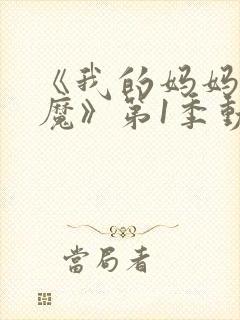 《我的妈妈
魔》第1季動
當局者